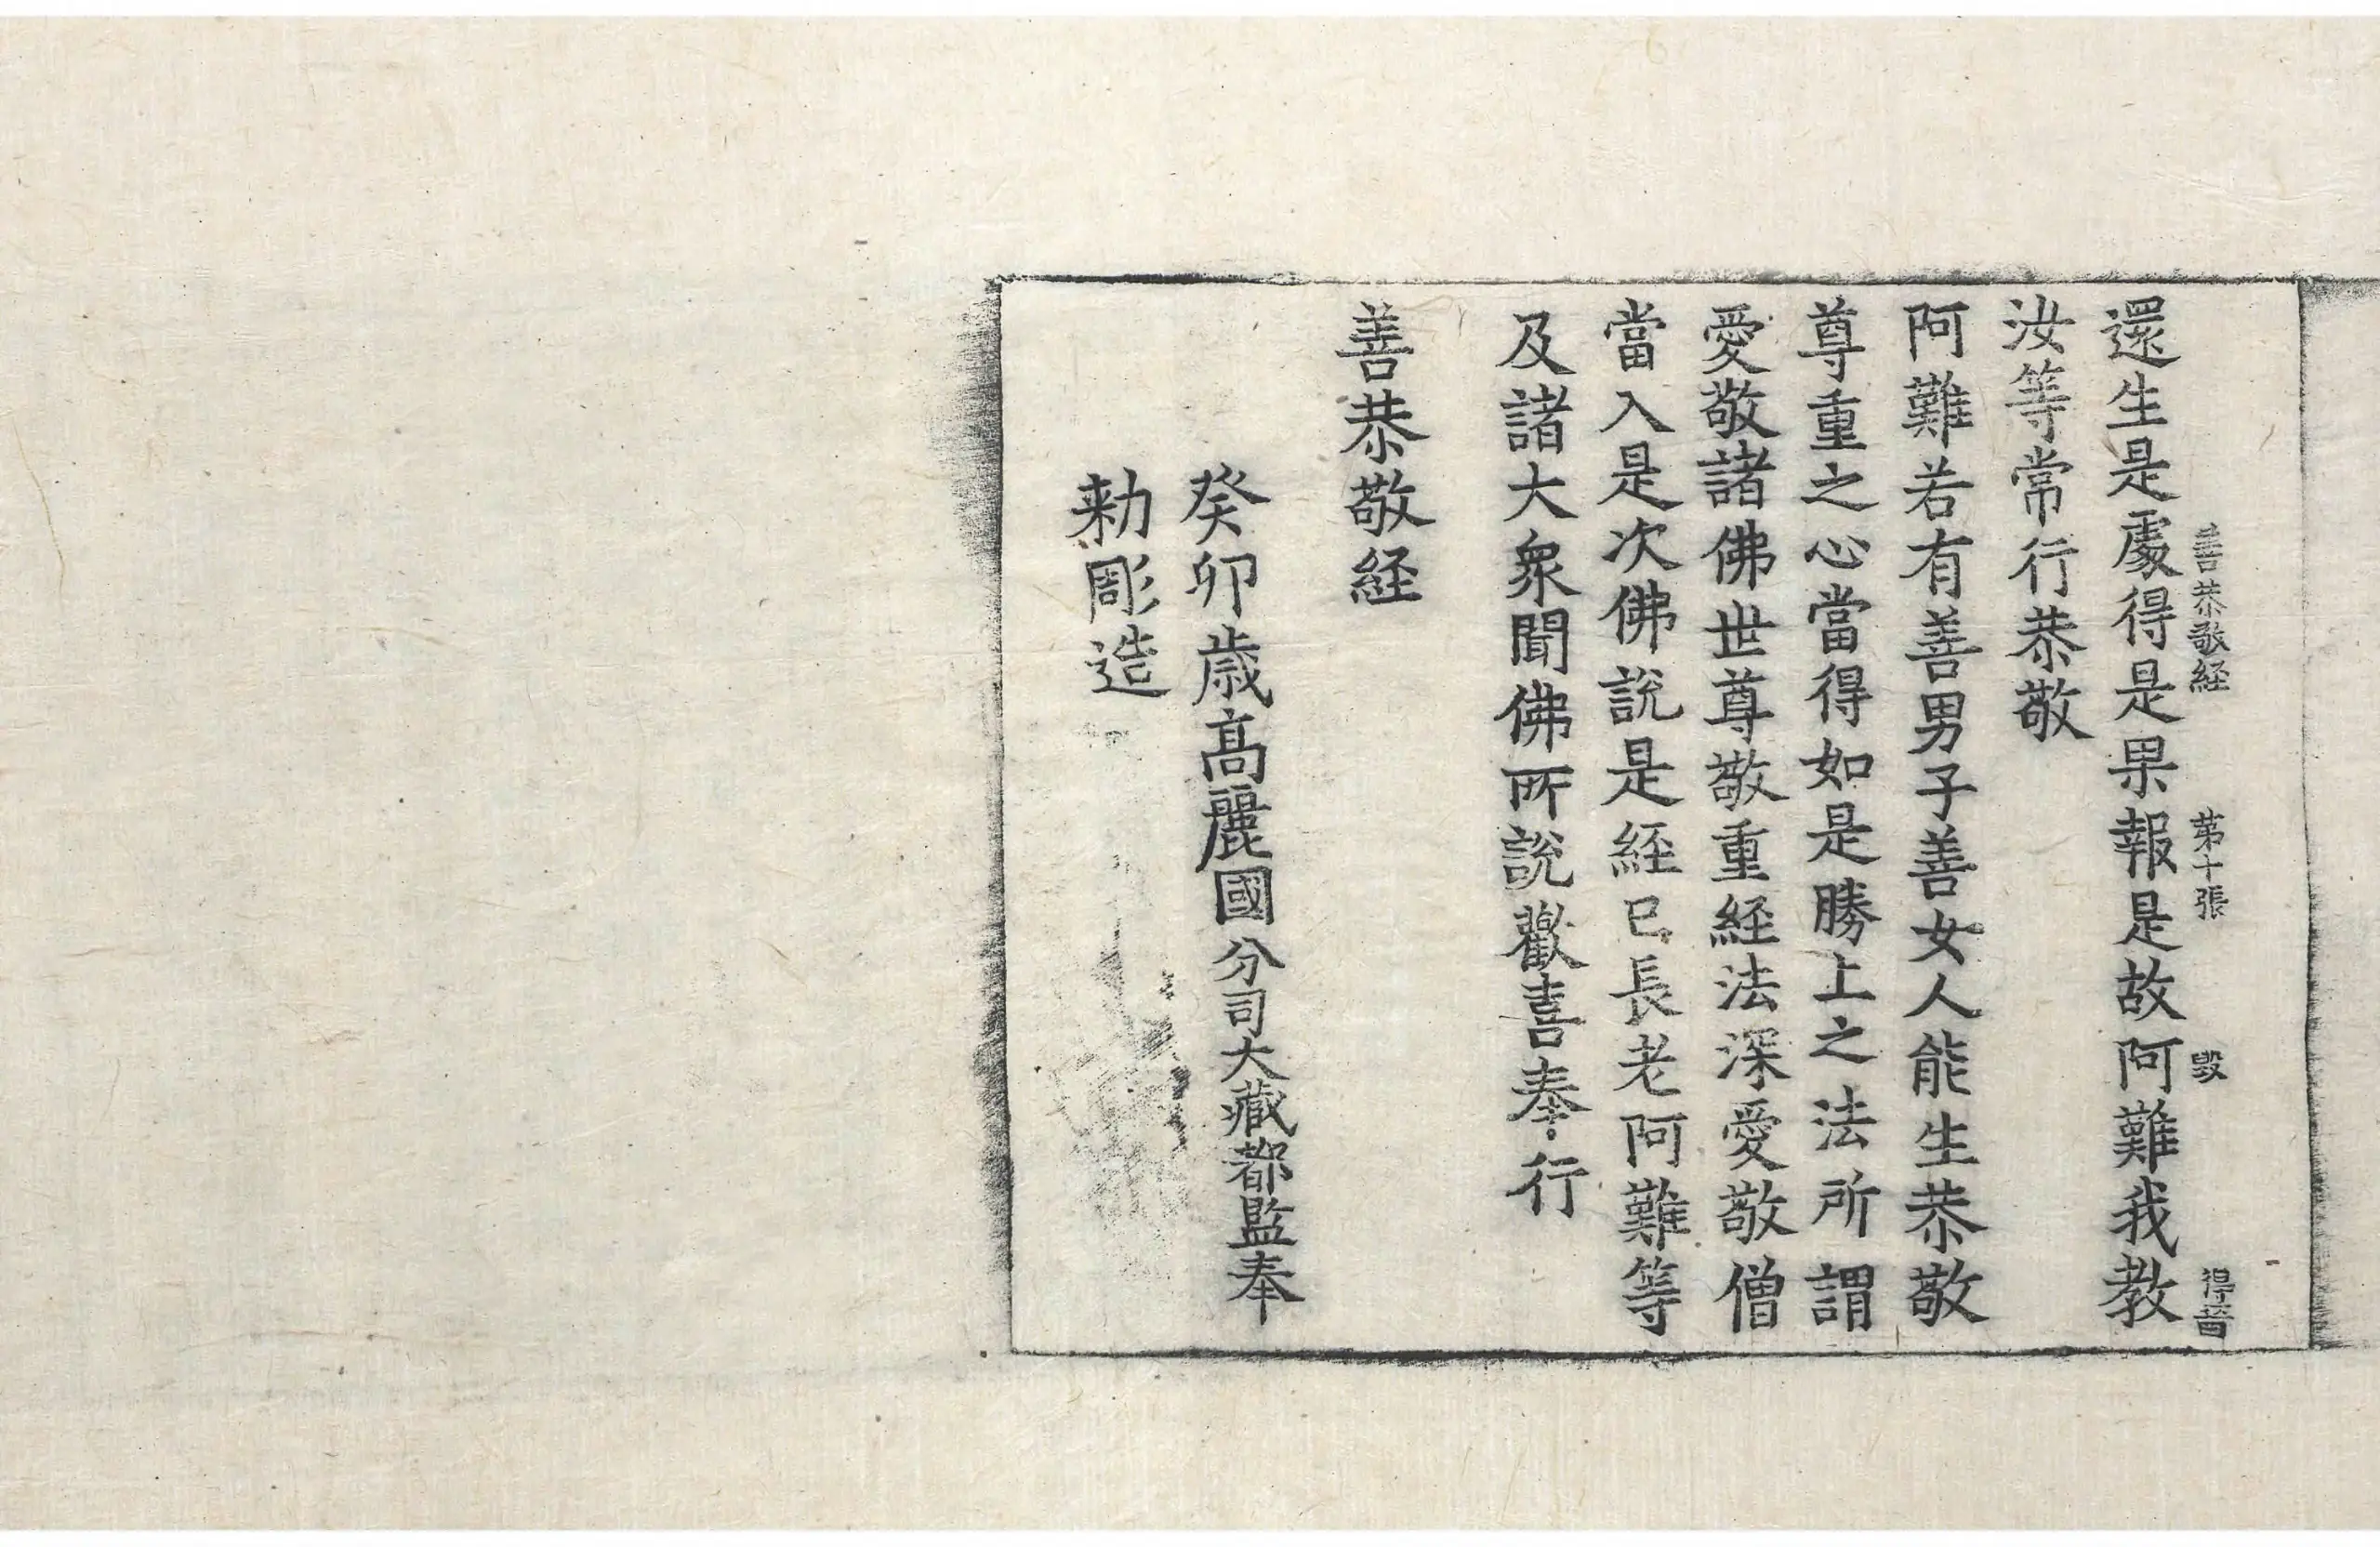 善恭敬経 第十張 毀 得啚
還生是處得是果報是故阿難我教
汝等常行恭敬
阿難若有善男子善女人能生恭敬
尊重之心當得如是勝上之法所謂
愛敬諸佛世尊敬重経法深愛敬僧
當入是次佛說是経已長老阿難等
及諸大衆聞佛所說歡喜奉行
善恭敬経
癸卯歳髙麗國分司大藏都監奉
勑彫造